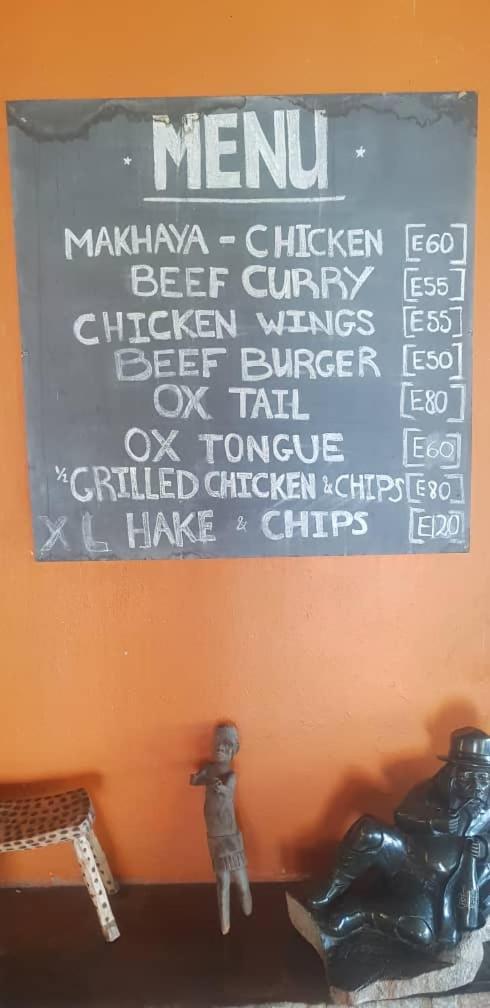 MENU
MAKHAYA - CHICKEN [E60]
BEEF CURRY [E55]
CHICKEN WINGS [E55]
BEEF BURGER [E50]
OX TAIL [E80]
OX TONGUE [E60]
½ GRILLED CHICKEN & CHIPS [E80]
XL HAKE & CHIPS [E120]